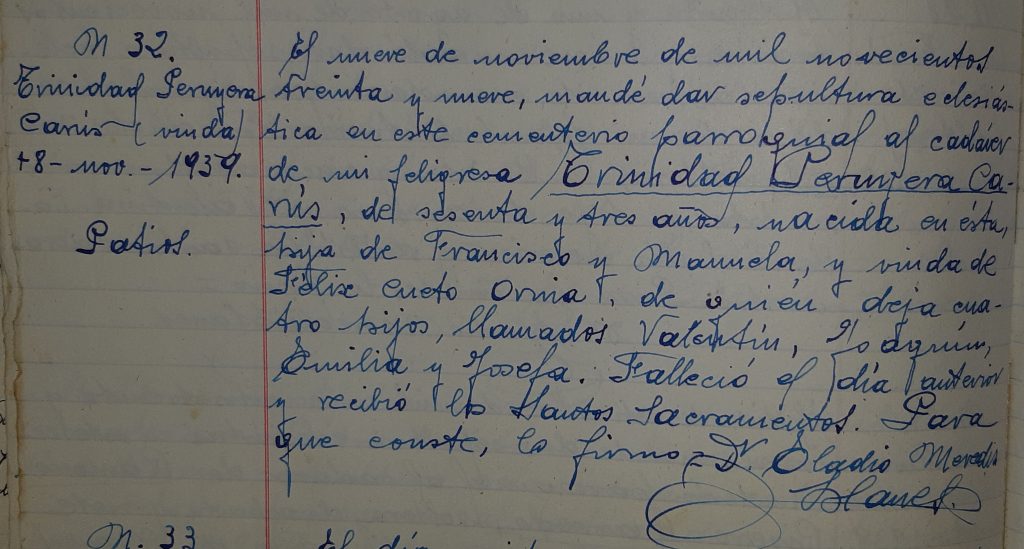 N 32.
Trinidad Peruyera
Carús (viuda)
+8-nov.-1939.
Patios.
El nueve de noviembre de mil novecientos
treinta y nueve, mandé dar sepultura eclesiás-
tica en este cementerio parroquial al cadáver
de mi feligresa Trinidad Peruyera Ca-
rús, de sesenta y tres años, nacida en ésta,
hija de Francisco y Manuela, y viuda de
Félix Cueto Orviа, de quién deja cua-
tro hijos, llamados Valentín, Joaquín,
Emilia y Josefa. Falleció el día anterior
y recibió los Santos Sacramentos. Para
que conste, lo firmo = Dr. Eladio
Blanco.
N. 33
El día